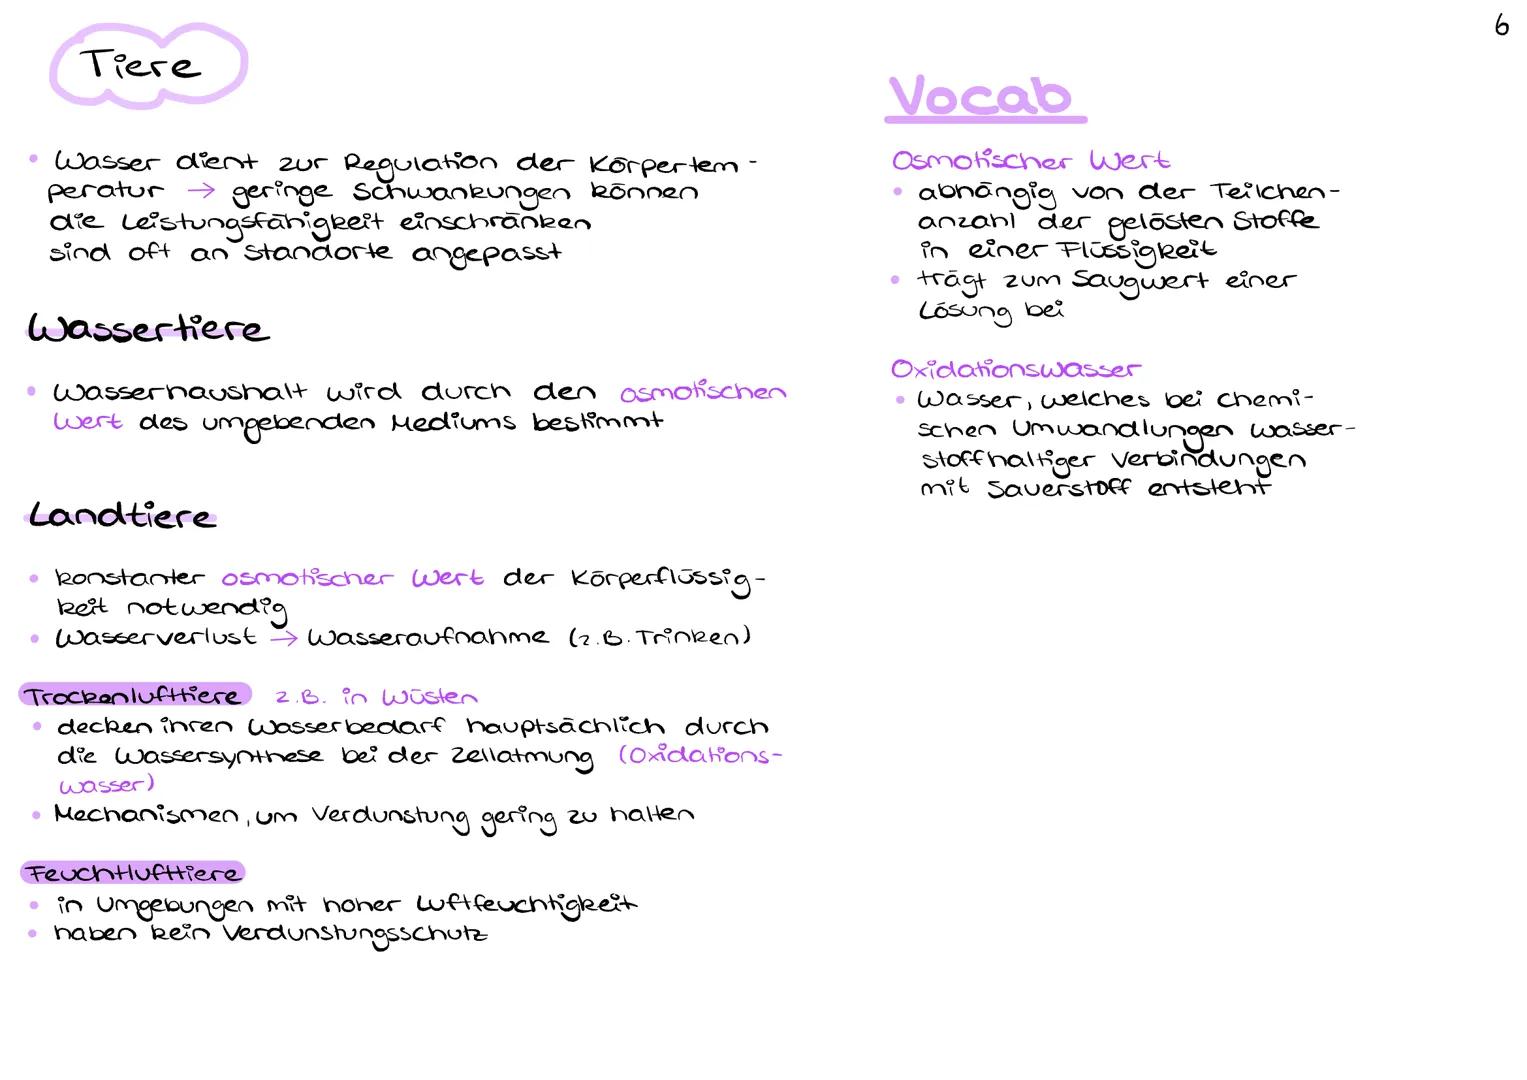 6
Tiere
• Wasser dient zur Regulation der Körpertem-
peratur → geringe Schwankungen können
die Leistungsfähigkeit einschränken
sind oft an Standorte angepasst
Wassertiere
• Wasserhaushalt wird durch den osmotischen
Wert des umgebenden Mediums bestimmt
Landtiere
• konstanter osmotischer Wert der Körperflüssig-
keit notwendig
• Wasserverlust → Wasseraufnahme (z.B. Trinken)
Trockenlufttiere z.B. in Wüsten
• decken ihren Wasserbedarf hauptsächlich durch
die Wassersynthese bei der Zellatmung (Oxidations-
wasser)
• Mechanismen, um Verdunstung gering zu halten
Feuchtlufttiere
• in Umgebungen mit hoher Luftfeuchtigkeit
• haben kein Verdunstungsschutz
Vocab
Osmotischer Wert
• abhängig von der Teilchen-
anzahl der gelösten Stoffe
in einer Flüssigkeit
• trägt zum Saugwert einer
Lösung bei
Oxidationswasser
• Wasser, welches bei chemi-
schen Umwandlungen wasser-
stoffhaltiger Verbindungen
mit Sauerstoff entsteht